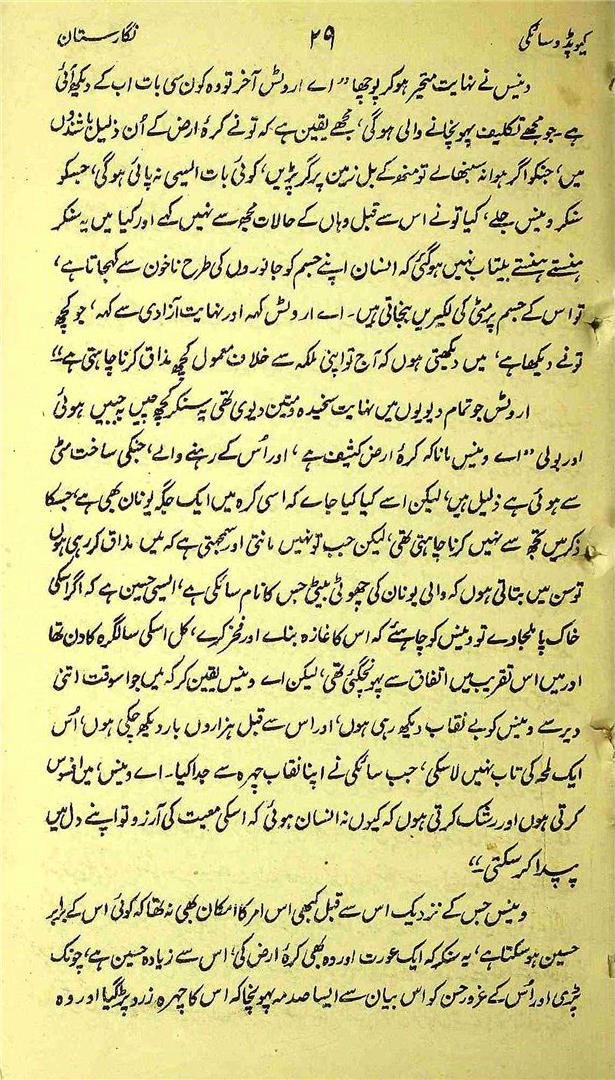 کیوپڈ و سائکی ۲۹ نگارستان
وینس نے نہایت متحیر ہوکر پوچھا "اے اروٹس آخر تو وہ کون سی بات اب کے دیکھ آئی
ہے۔ جو مجھے تکلیف پہونچانے والی ہوگی، مجھے یقین ہے کہ تو نے کرۂ ارض کے اُن ذلیل باشندوں
میں، جنکو اگر ہوا نہ سنبھالے تو منھ کے بل زمین پر گر پڑیں، کوئی بات ایسی نہ پائی ہوگی، جسکو
سنکر وینس جلے، کیا تو نے اس سے قبل وہاں کے حالات مجھ سے نہیں کہے اور کیا میں یہ سنکر
ہنستے ہنستے بیتاب نہیں ہوگئی کہ انسان اپنے جسم کو جانوروں کی طرح ناخون سے کھجاتا ہے،
تو اس کے جسم پر مٹی کی لکیریں بنجاتی ہیں۔ اے اروٹس کہہ اور نہایت آزادی سے کہہ، جو کچھ
تو نے دیکھا ہے، میں دیکھتی ہوں کہ آج تو اپنی ملکہ سے خلاف معمول کچھ مذاق کرنا چاہتی ہے"
اروٹس جو تمام دیویوں میں نہایت سنجیدہ و متین دیوی تھی یہ سنکر کچھ چیں بہ جبیں ہوئی
اور بولی "اے وینس مانا کہ کرۂ ارض کثیف ہے، اور اُس کے رہنے والے، جنکی ساخت مٹی
سے ہوئی ہے ذلیل ہیں، لیکن اسے کیا کیا جاے کہ اسی کرہ میں ایک جگہ یونان بھی ہے، جسکا
ذکر میں تجھ سے نہیں کرنا چاہتی تھی، لیکن جب تو نہیں مانتی اور سمجھتی ہے کہ میں مذاق کر رہی ہوں
تو سن میں بتاتی ہوں کہ والی یونان کی چھوٹی بیٹی جس کا نام سائکی ہے، ایسی حسین ہے کہ اگر اسکی
خاک پا ملجاوے تو وینس کو چاہئے کہ اس کا غازہ بناے اور فخر کرے، کل اسکی سالگرہ کا دن تھا
اور میں اس تقریب میں اتفاق سے پہونچگئی تھی، لیکن اے وینس یقین کر کہ میں جو اسوقت اتنی
دیر سے وینس کو بے نقاب دیکھ رہی ہوں، اور اس سے قبل ہزاروں بار دیکھ چکی ہوں، اُس
ایک لمحہ کی تاب نہیں لاسکی، جب سائکی نے اپنا نقاب چہرہ سے جدا کیا۔ اے وینس، میں افسوس
کرتی ہوں اور رشک کرتی ہوں کہ کیوں نہ انسان ہوئی کہ اسکی معیت کی آرزو تو اپنے دل میں
پیدا کر سکتی"
وینس جس کے نزدیک اس سے قبل کبھی اس امر کا امکان بھی نہ تھا کہ کوئی اس کے برابر
حسین ہوسکتا ہے، یہ سنکر کہ ایک عورت اور وہ بھی کرۂ ارض کی، اس سے زیادہ حسین ہے، چونک
پڑی اور اُس کے غرور حسن کو اس بیان سے ایسا صدمہ پہونچا کہ اس کا چہرہ زرد پڑگیا اور وہ